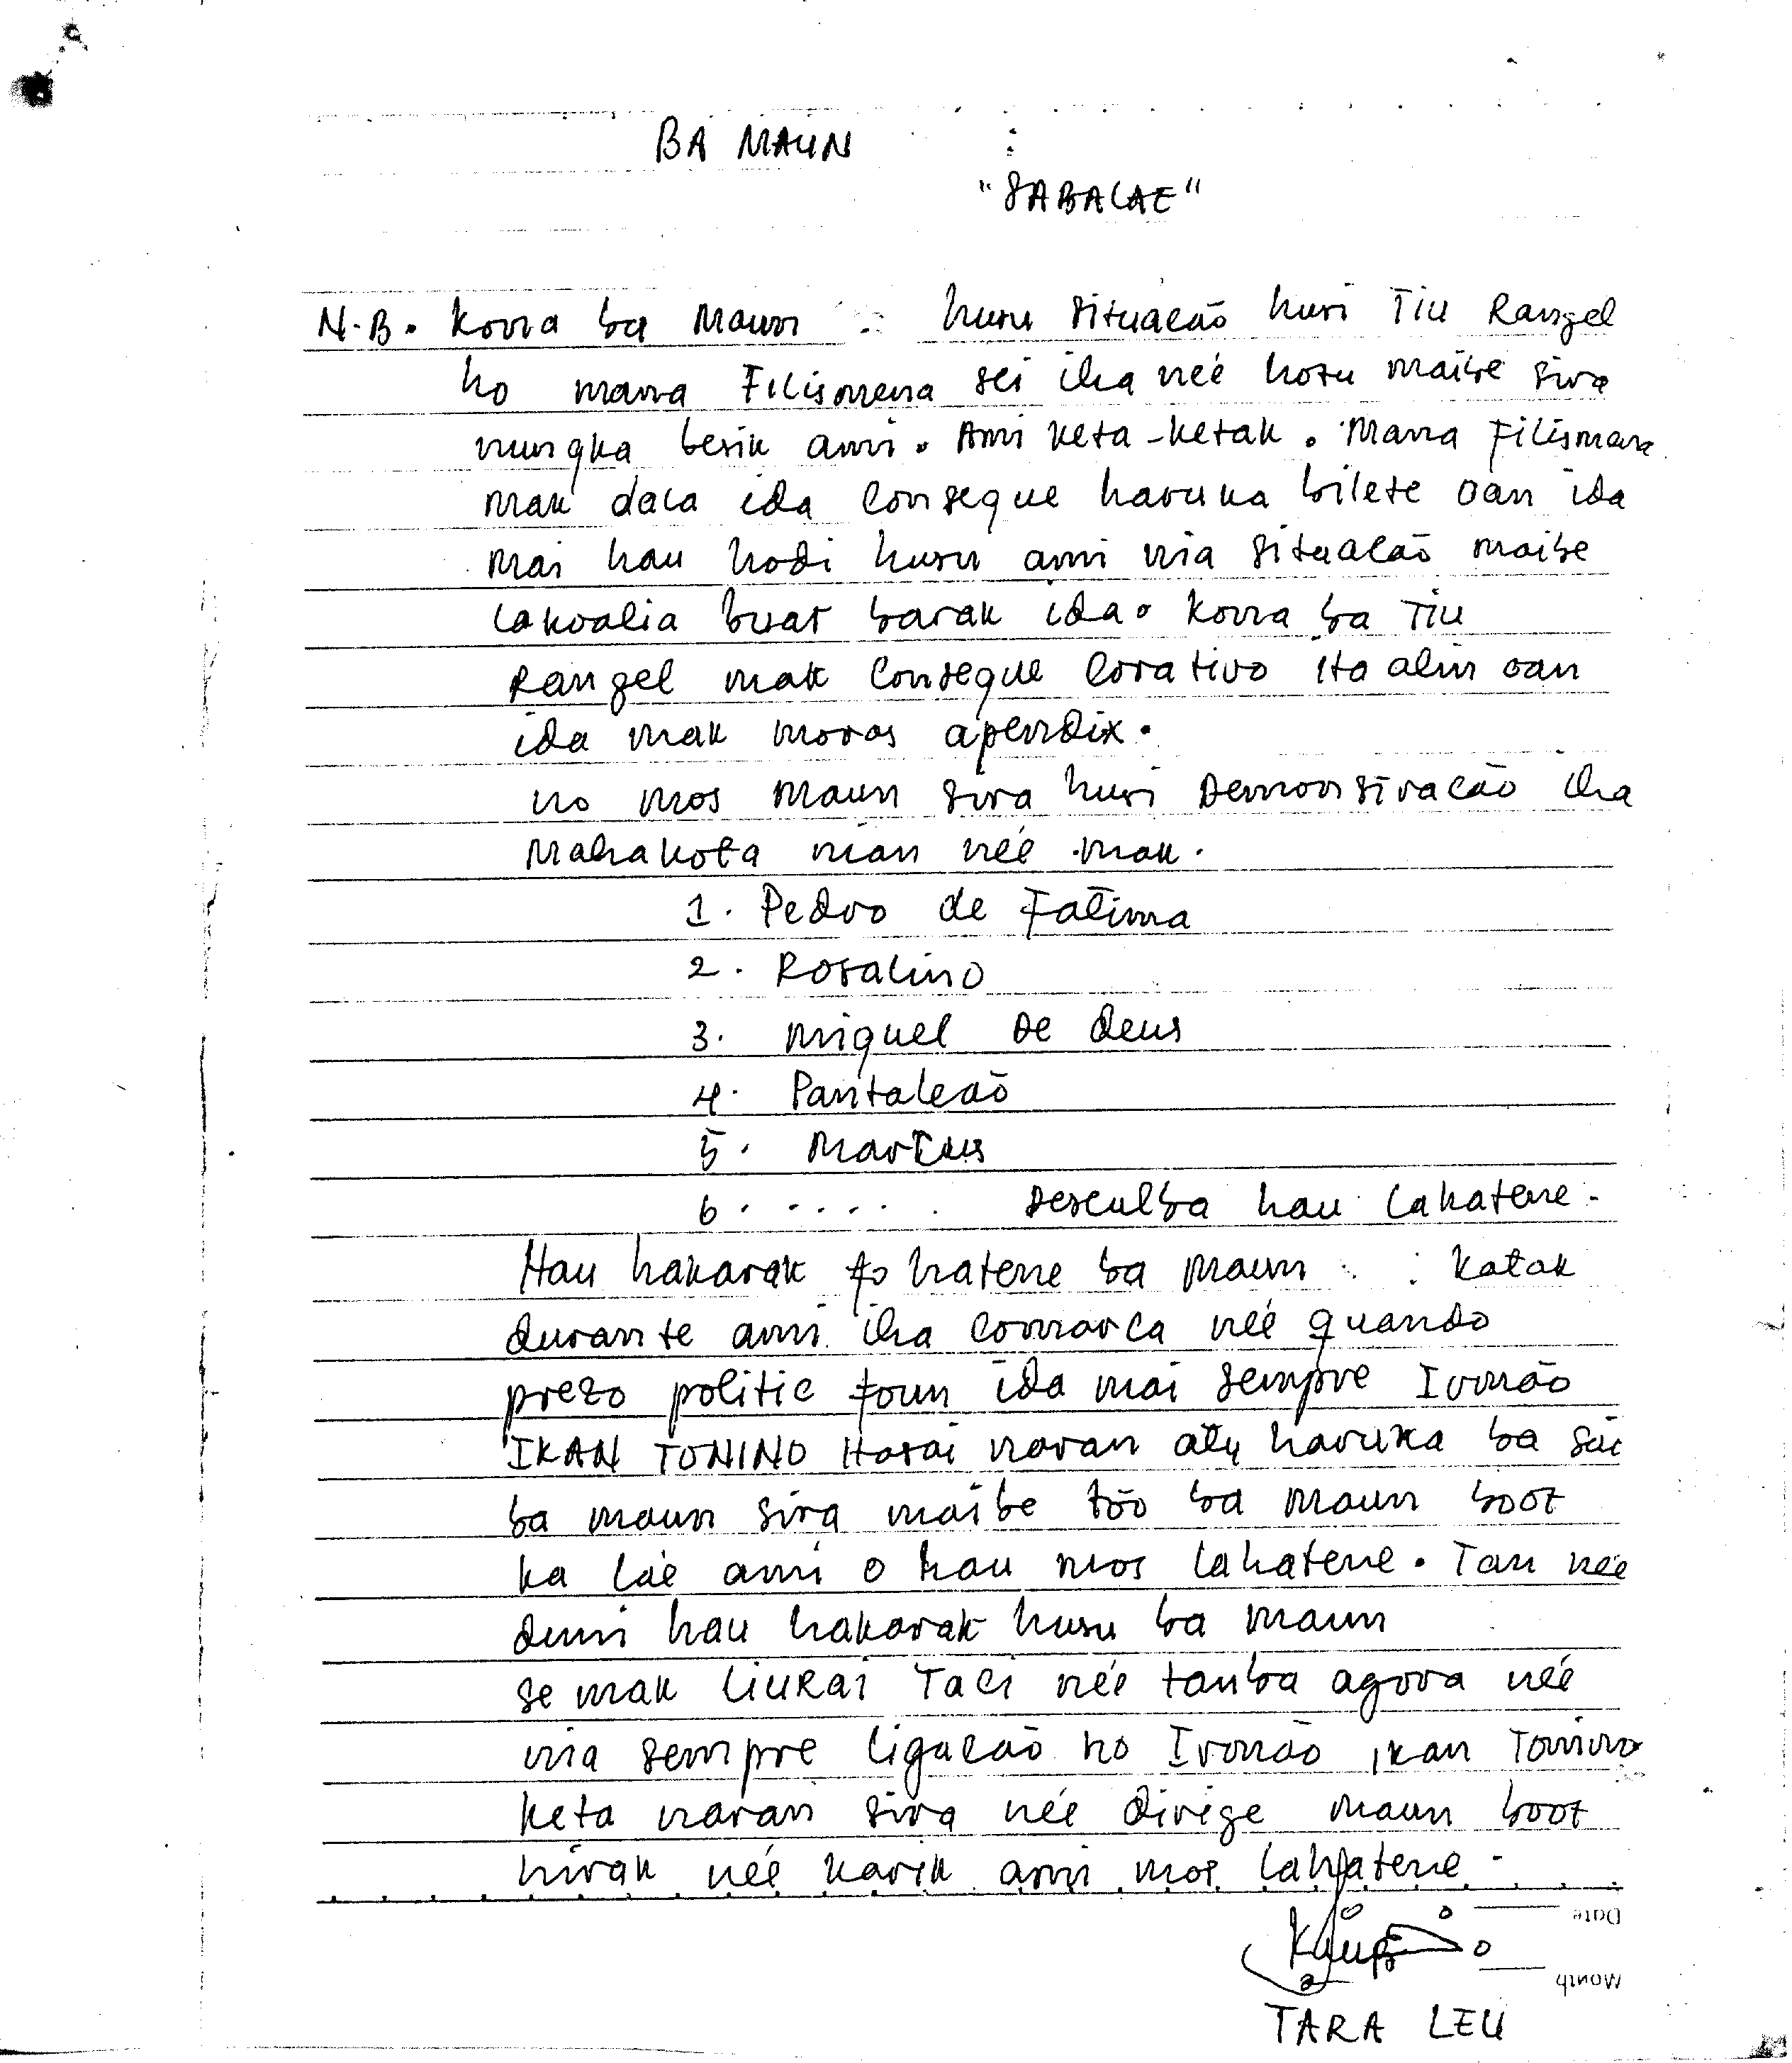 BA MAUN :
"SABALAE"
N.B. Kona ba Maun : husu situacão husi Tiu Rangel
ho mana Filismena sei iha neé hotu maibe sira
nungka besik ami. Ami keta-ketak. Mana Filismena
mak dala ida conseque haruka bilete oan ida
mai hau hodi husu ami nia situacão maibe
lakoalia buat barak ida. Kona ba Tiu
Rangel mak conseque corativo ita alin oan
ida mak moras apendix.
no mos maun sira husi Demonstracão iha
Mahakota nian neé mak.
1. Pedro de Fatima
2. Rosalino
3. Miquel de deus
4. Pantaleaõ
5. Markus
6. ..... Desculba hau lahatene.
Hau hakarak fo hatene ba maun : katak
durante ami iha comarca neé quando
prezo politic foun ida mai sempre Irmão
IKAN TONINO Hasai naran atu haruka ba sai
ba maun sira maibe tōo ba maun boot
ka laé ami o hau mos lahatene. Tan neé
duni hau hakarak husu ba maun
se mak LIURAI Taci neé tanba agora neé
nia sempre ligacão ho Irmão ikan Tonino
keta naran sira neé dirige maun boot
hirak neé karik ami mos lahatene.
Date
Month
TARA LEU